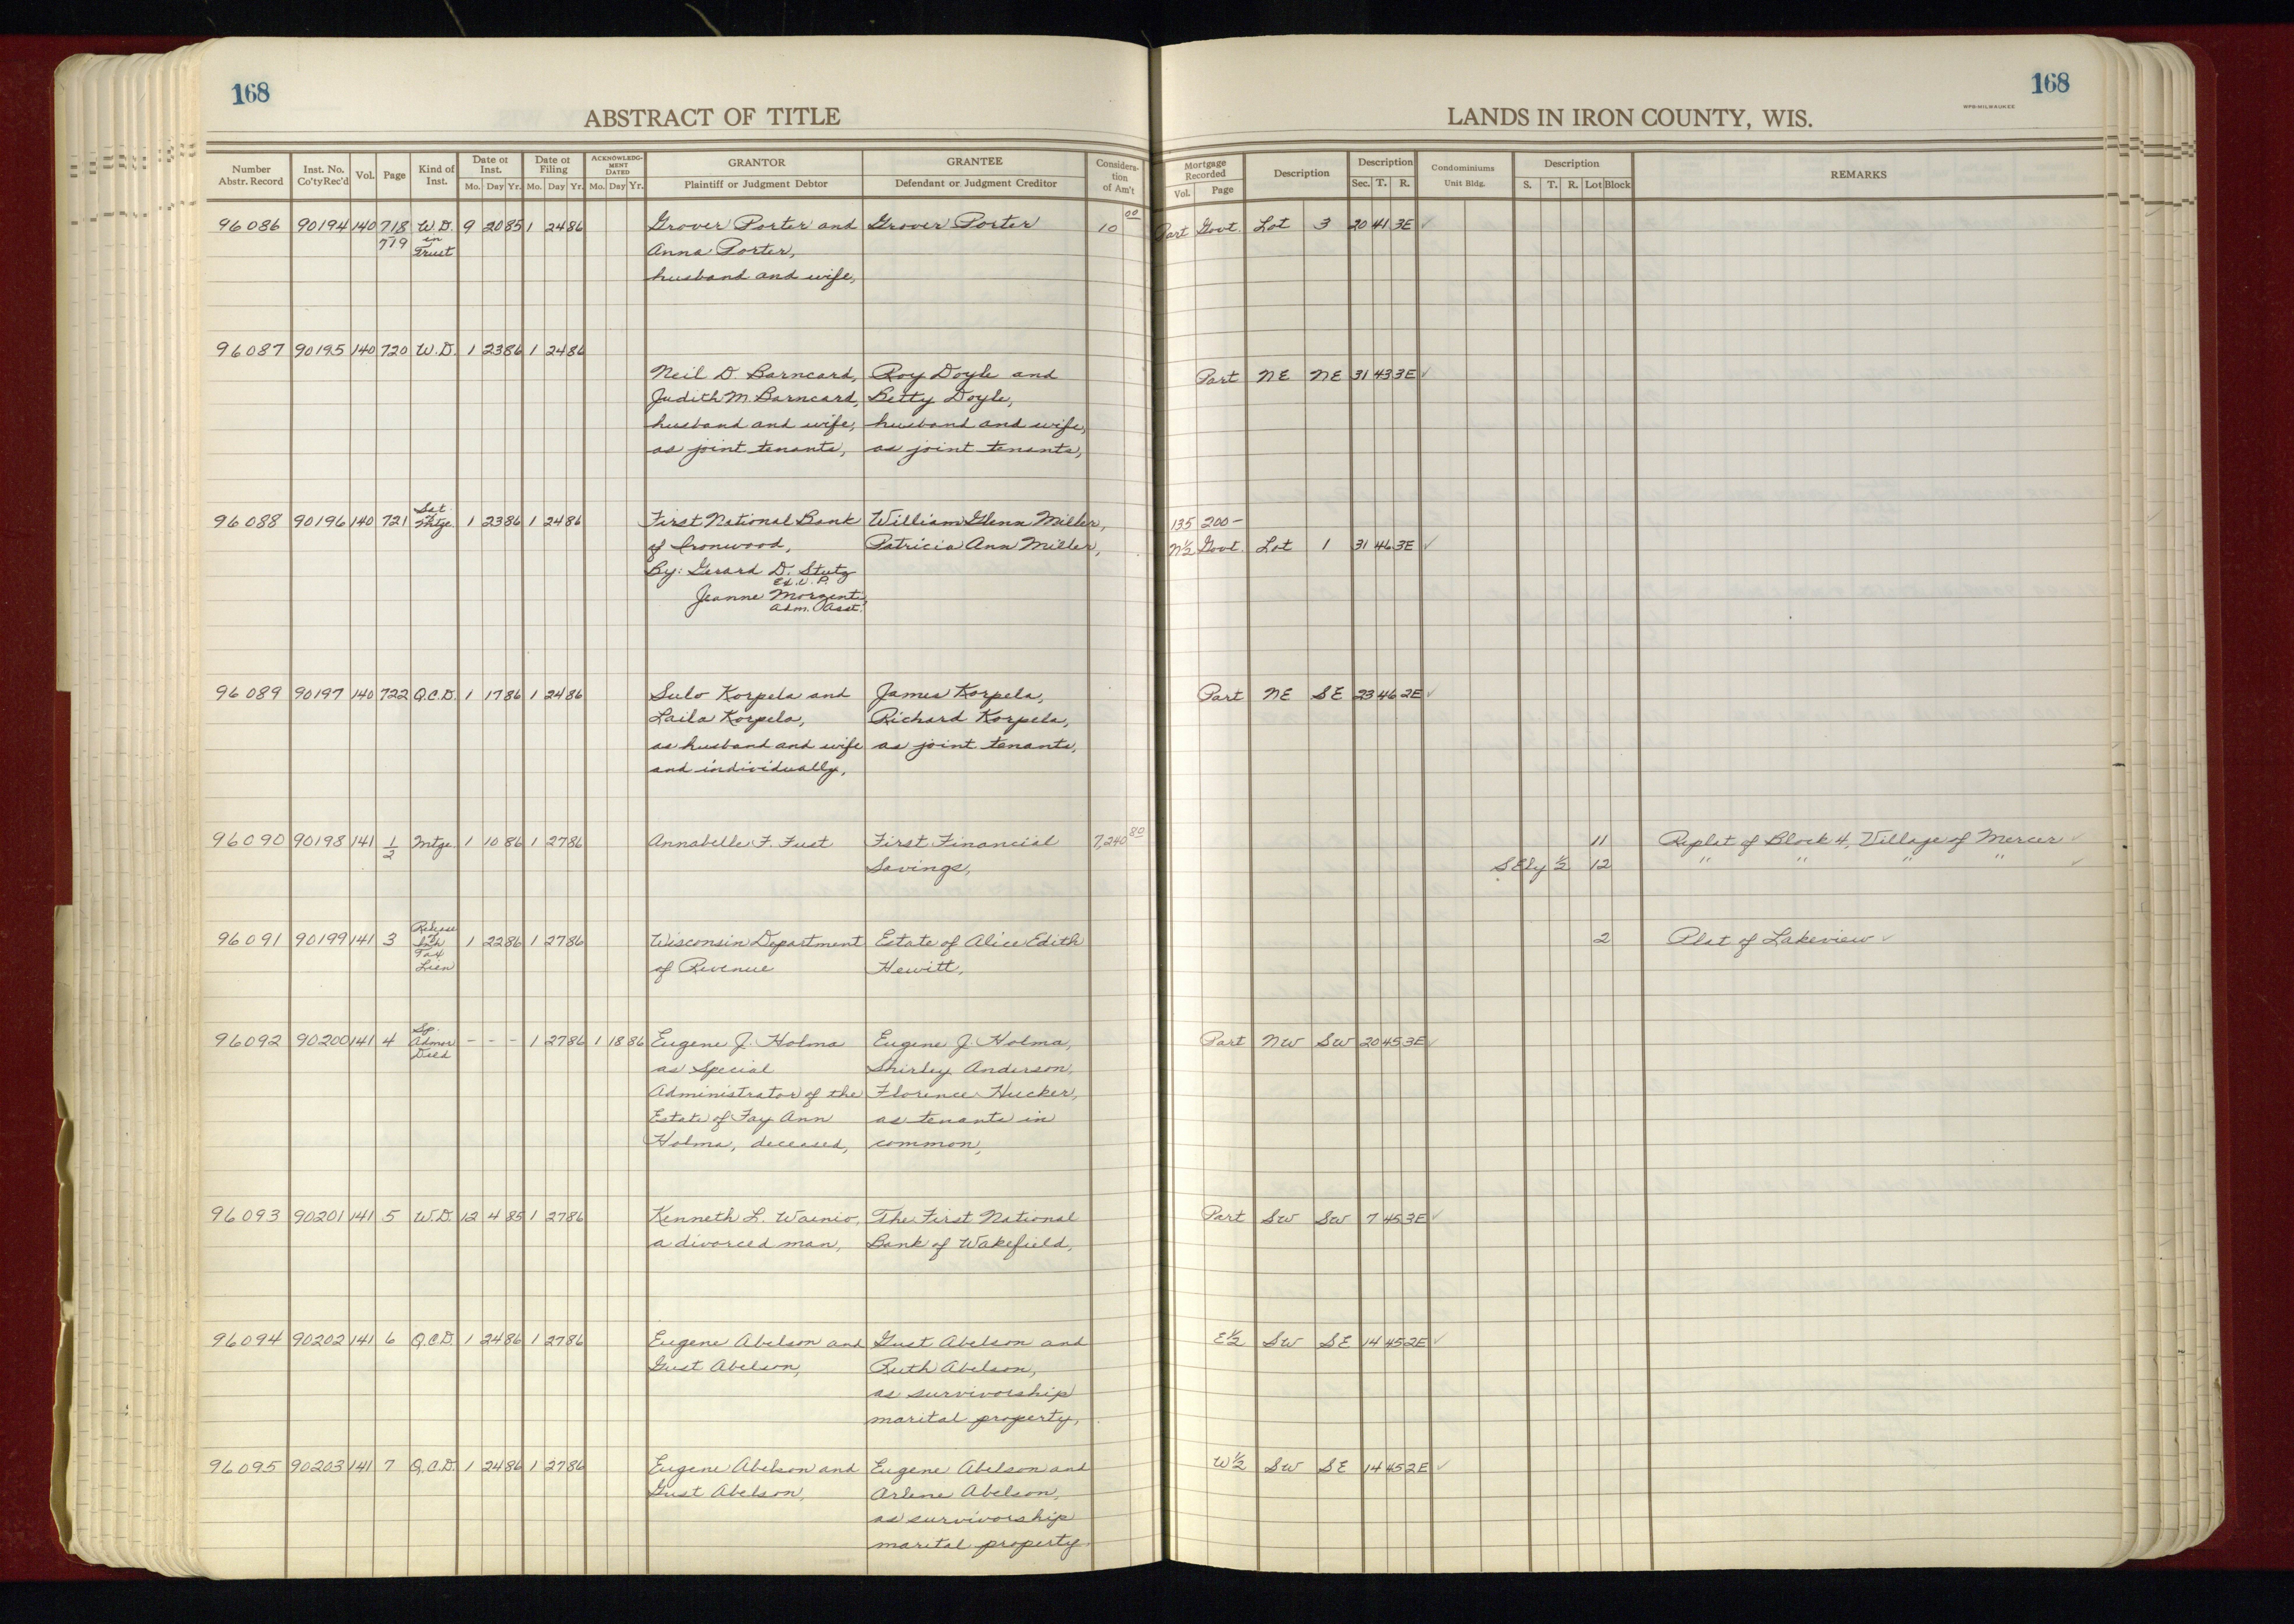 168
168
WPB-MILWAUKEE
ABSTRACT OF TITLE
LANDS IN IRON COUNTY, WIS.
Number Abstr. Record | Inst. No. Co'ty Rec'd | Vol. | Page | Kind of Inst. | Date of Inst. Mo. Day Yr. | Date of Filing Mo. Day Yr. | ACKNOWLEDGMENT DATED Mo. Day Yr. | GRANTOR Plaintiff or Judgment Debtor | GRANTEE Defendant or Judgment Creditor | Consideration of Am't | Mortgage Recorded Vol. Page | Description | Description Sec. T. R. | Condominiums Unit Bldg. | Description S. T. R. Lot Block | REMARKS
96086 90194 140 718 W.D. 9 20 85 1 24 86 Grover Porter and Grover Porter 10 00 Part Govt. Lot 3 20 41 3E ✓
719 in Trust Anna Porter,
husband and wife,
96087 90195 140 720 W.D. 1 23 86 1 24 86
Neil D. Barncard, Roy Doyle and Part NE NE 31 43 3E ✓
Judith M. Barncard, Betty Doyle,
husband and wife, husband and wife,
as joint tenants, as joint tenants,
96088 90196 140 721 Sat. of Mtge. 1 23 86 1 24 86 First National Bank William Glenn Miller, 135 200-
of Ironwood, Patricia Ann Miller, N½ Govt. Lot 1 31 46 3E ✓
By: Gerard D. Stutz
Ex. V. P.
Jeanne Morzenti,
Adm. Asst.
96089 90197 140 722 Q.C.D. 1 17 86 1 24 86 Sulo Korpela and James Korpela, Part NE SE 23 46 2E ✓
Laila Korpela, Richard Korpela,
as husband and wife as joint tenants,
and individually,
96090 90198 141 1/2 Mtge. 1 10 86 1 27 86 Annabelle F. Fust First Financial 7,240 80 11 Replat of Block 4, Village of Mercer ✓
Savings, SEly ½ 12 " " " " ✓
96091 90199 141 3 Release of Inh Tax Lien 1 22 86 1 27 86 Wisconsin Department Estate of Alice Edith 2 Plat of Lakeview ✓
of Revenue Hewitt,
96092 90200 141 4 Sp. Admor Deed - - - 1 27 86 1 18 86 Eugene J. Holma Eugene J. Holma, Part NW SW 20 45 3E ✓
as Special Shirley Anderson,
Administrator of the Florence Hucker,
Estate of Fay Ann as tenants in
Holma, deceased, common,
96093 90201 141 5 W.D. 12 4 85 1 27 86 Kenneth L. Wainio, The First National Part SW SW 7 45 3E ✓
a divorced man, Bank of Wakefield,
96094 90202 141 6 Q.C.D. 1 24 86 1 27 86 Eugene Abelson and Gust Abelson and E½ SW SE 14 45 2E ✓
Gust Abelson, Ruth Abelson,
as survivorship
marital property,
96095 90203 141 7 Q.C.D. 1 24 86 1 27 86 Eugene Abelson and Eugene Abelson and W½ SW SE 14 45 2E ✓
Gust Abelson, Arlene Abelson,
as survivorship
marital property